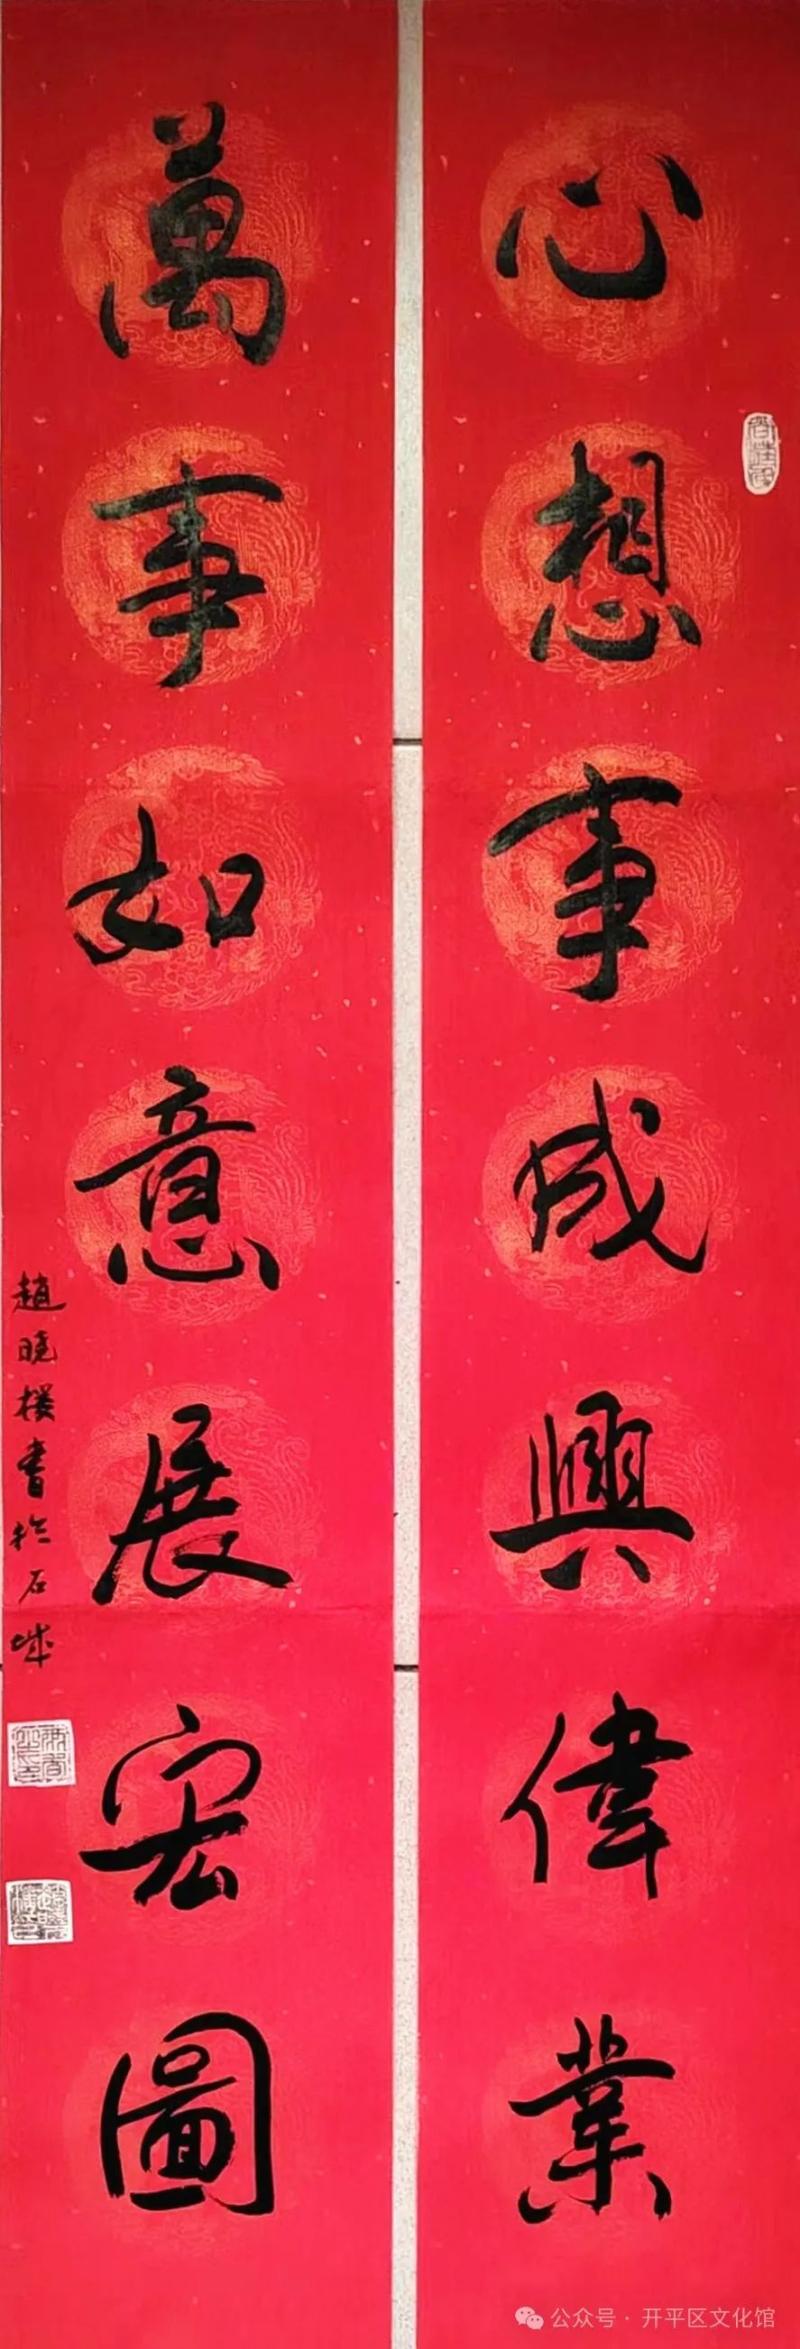 心想事成興偉業
萬事如意展宏圖
趙曉樓書於石城
公众号·开平区文化馆